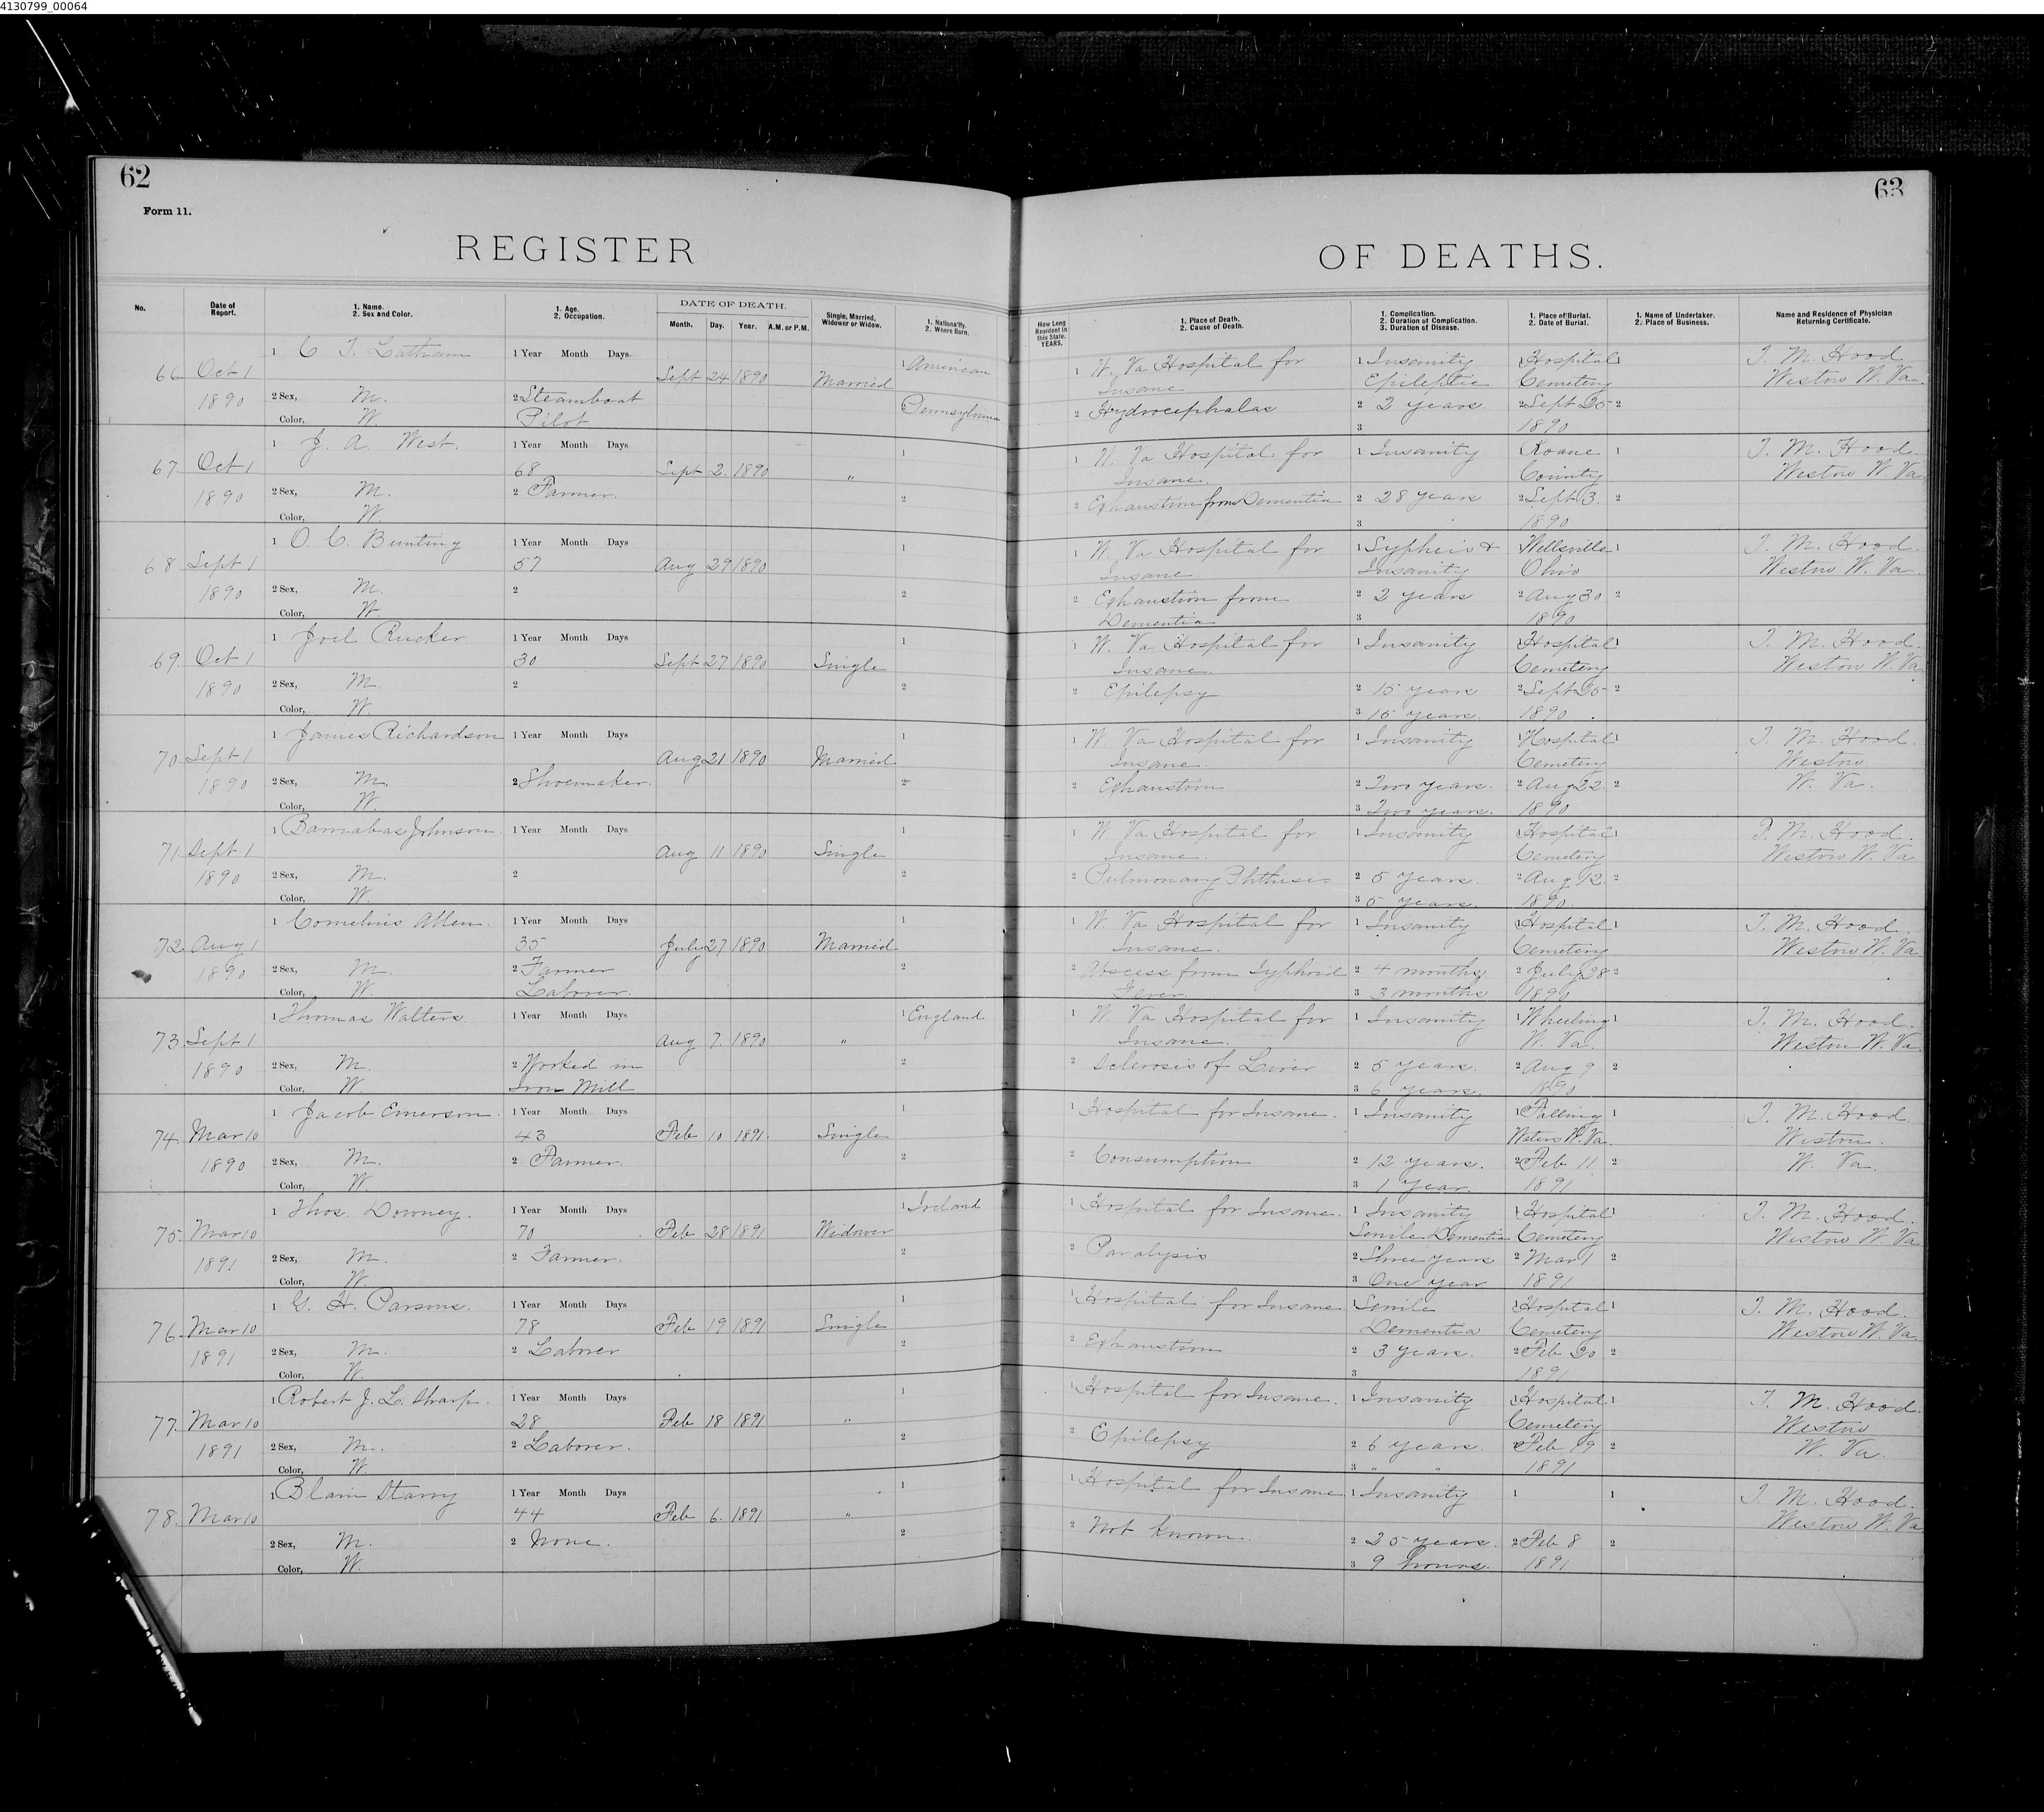 4130799_00064
62
63
Form 11.
REGISTER
OF DEATHS.
No.
Date of Report.
1. Name. 2. Sex and Color.
1. Age. 2. Occupation.
DATE OF DEATH.
Month. Day. Year. A.M. or P.M.
Single, Married, Widower or Widow.
1. Nationality. 2. Where Born.
How Long Resident in this State. YEARS.
1. Place of Death. 2. Cause of Death.
1. Complication. 2. Duration of Complication. 3. Duration of Disease.
1. Place of Burial. 2. Date of Burial.
1. Name of Undertaker. 2. Place of Business.
Name and Residence of Physician Returning Certificate.
1 C T. Latham 1 Year Month Days 1 American 1 W. Va Hospital for 1 Insanity 1 Hospital 1 T. M. Hood
66. Oct 1 Sept 24 1890 Married Insane Epileptic Cemetery Weston W. Va.
1890 2 Sex, M. 2 Steamboat 2 Pennsylvania 2 Hydrocephalas 2 2 years 2 Sept 25 2
Color, W. Pilot 3 1890
1 J. A. West. 1 Year Month Days 1 1 W. Va Hospital for 1 Insanity Roane 1 T. M. Hood.
67. Oct 1 68 Sept 2. 1890 " Insane. County Weston W. Va
1890 2 Sex, M. 2 Farmer. 2 2 Exhaustion from Dementia 2 28 years 2 Sept 3. 2
Color, W. 3 1890
1 O. C. Bunting 1 Year Month Days 1 1 W. Va Hospital for 1 Sypheis & Wellsville 1 T. M. Hood.
68 Sept 1 57 Aug 29 1890 Insane Insanity Ohio Weston W. Va
1890 2 Sex, M. 2 2 2 Exhaustion from 2 2 years 2 Aug 30 2
Color, W Dementia 3 1890
1 Joel Rucker 1 Year Month Days 1 1 W. Va Hospital for 1 Insanity 1 Hospital 1 T. M. Hood.
69. Oct 1 30 Sept 27 1890 Single Insane. Cemetery Weston W. Va
1890 2 Sex, M. 2 2 2 Epilepsy 2 15 years 2 Sept 25 2
Color, W. 3 15 years. 1890.
1 James Richardson 1 Year Month Days 1 1 W. Va Hospital for 1 Insanity 1 Hospital 1 T. M. Hood.
70. Sept 1 Aug 21 1890 Married Insane. Cemetery Weston
1890 2 Sex, M. 2 Shoemaker. 2 2 Exhaustion 2 Two years. 2 Aug 22. 2 W. Va.
Color, W. 3 Two years. 1890
1 Barnabas Johnson. 1 Year Month Days 1 1 W. Va Hospital for 1 Insanity 1 Hospital 1 T. M. Hood.
71. Sept 1 Aug 11 1890 Single Insane. Cemetery Weston W. Va
1890 2 Sex, M. 2 2 2 Pulmonary Phthisis 2 5 years. 2 Aug 12. 2
Color, W. 3 5 years. 1890.
1 Cornelius Allen. 1 Year Month Days 1 1 W. Va Hospital for 1 Insanity 1 Hospital 1 T. M. Hood.
72. Aug 1 35 July 27 1890 Married Insane. Cemetery Weston W. Va
1890 2 Sex, M. 2 Farmer 2 2 Abscess from Typhoid 2 4 months 2 July 28 2
Color, W. Laborer. Fever. 3 3 months 1890
1 Thomas Walters 1 Year Month Days 1 England 1 W. Va Hospital for 1 Insanity 1 Wheeling 1 T. M. Hood.
73. Sept 1 Aug 7. 1890 " Insane. W. Va. Weston W. Va
1890 2 Sex, M. 2 Worked in 2 2 Sclerosis of Liver 2 5 years. 2 Aug 9 2
Color, W. Iron Mill 3 6 years. 1890
1 Jacob Emerson. 1 Year Month Days 1 1 Hospital for Insane. 1 Insanity 1 Falling 1 T. M. Hood
74. Mar 10 43 Feb 10 1891. Single Waters W. Va. Weston.
1890 2 Sex, M. 2 Farmer. 2 2 Consumption 2 12 years. 2 Feb 11 2 W. Va.
Color, W 3 1 Year. 1891
1 Thos. Downey. 1 Year Month Days 1 Ireland 1 Hospital for Insane. 1 Insanity 1 Hospital 1 T. M. Hood.
75. Mar 10 70 Feb 28 1891 Widower Senile Dementia Cemetery Weston W. Va
1891 2 Sex, M. 2 Farmer. 2 2 Paralysis 2 Three years 2 Mar 1 2
Color, W. 3 One year 1891
1 G. H. Parsons. 1 Year Month Days 1 1 Hospital for Insane 1 Senile 1 Hospital 1 T. M. Hood.
76. Mar 10 78 Feb 19 1891 Single Dementia Cemetery Weston W. Va.
1891 2 Sex, M. 2 Laborer 2 2 Exhaustion 2 3 years. 2 Feb 20 2
Color, W. 3 1891
1 Robert J. L. Sharp. 1 Year Month Days 1 1 Hospital for Insane. 1 Insanity 1 Hospital 1 T. M. Hood.
77. Mar 10 28 Feb 18 1891 " Cemetery Weston
1891 2 Sex, M. 2 Laborer. 2 2 Epilepsy 2 6 years. 2 Feb 19 2 W. Va.
Color, W. 3 " " 1891
1 Blain Starry 1 Year Month Days 1 1 Hospital for Insane 1 Insanity 1 1 T. M. Hood.
78. Mar 10 44 Feb 6. 1891 " Weston W. Va
2 Sex, M. 2 None. 2 2 Not known. 2 25 years. 2 Feb 8 2
Color, W. 3 9 hours. 1891